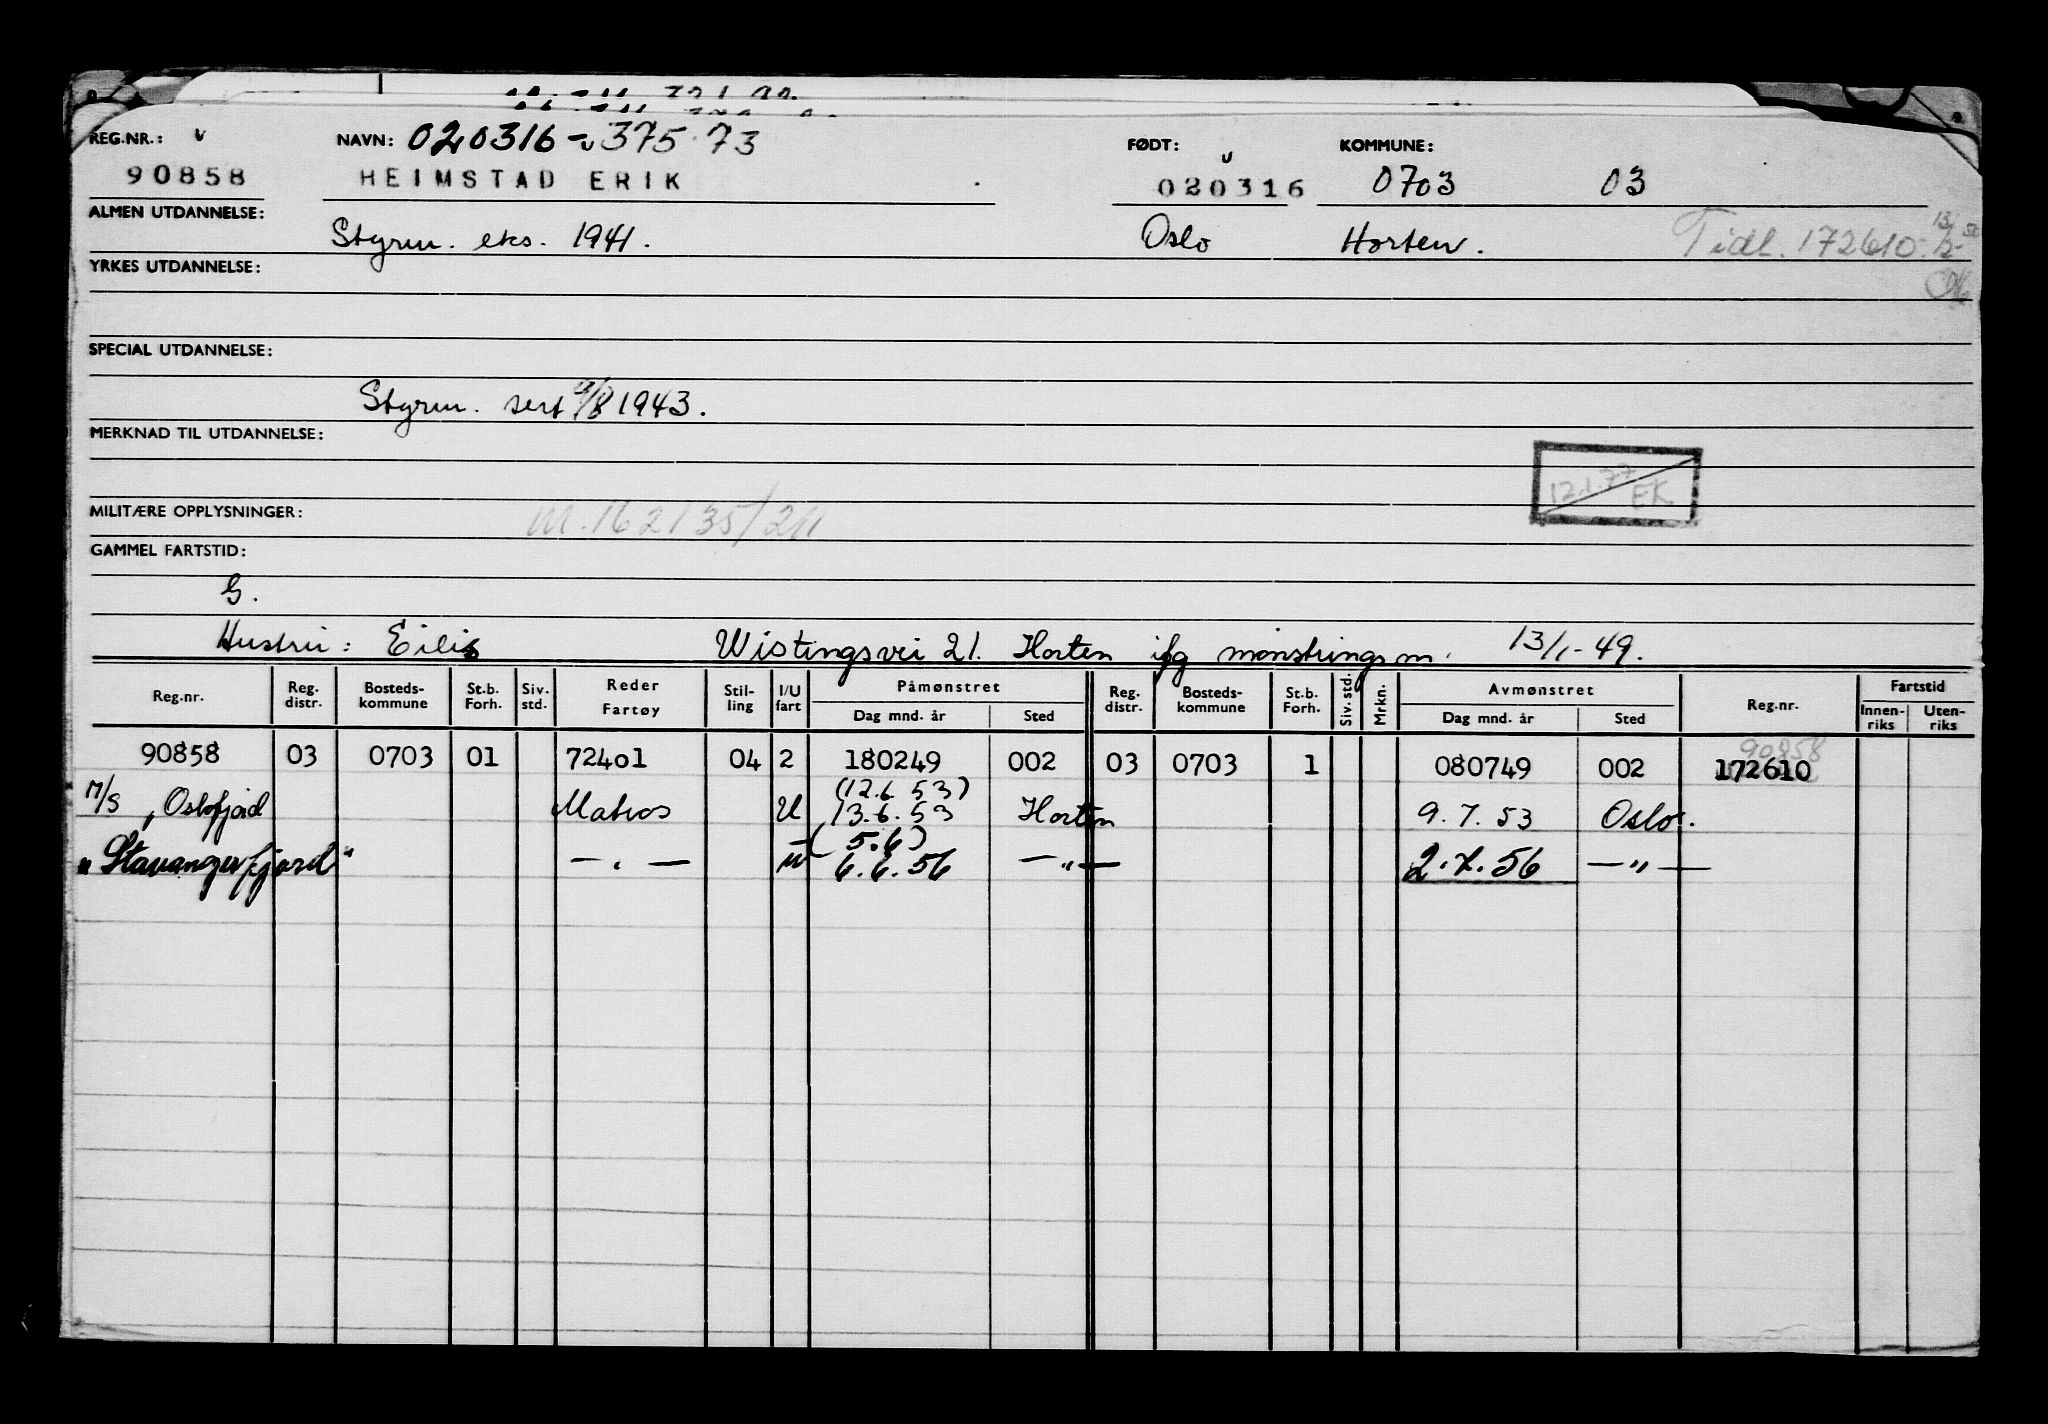 REG.NR.: v NAVN: 020316-37573 FØDT: v KOMMUNE:
90858 HEIMSTAD ERIK 020316 0703 03
ALMEN UTDANNELSE: Styrm. eks. 1941. Oslo Horten. Tidl. 172610.
YRKES UTDANNELSE:
SPECIAL UTDANNELSE:
Styrm. sert /8 1943.
MERKNAD TIL UTDANNELSE:
12.1.77 EK
MILITÆRE OPPLYSNINGER: M.162135/211
GAMMEL FARTSTID:
G.
Hustru: Eilis Wistingsvei 21. Horten ifg mønstringsm. 13/1-49.
Reg.nr. Reg. distr. Bosteds- kommune St.b. Forh. Siv. std. Reder Fartøy Stil- ling I/U fart Påmønstret Dag mnd. år Sted Reg. distr. Bosteds- kommune St.b. Forh. Siv. std. Mrkn. Avmønstret Dag mnd. år Sted Reg.nr. Fartstid Innen- riks Uten- riks
90858 03 0703 01 72401 04 2 180249 002 03 0703 1 080749 002 90858 172610
(12.6.53)
M/S "Oslofjord Matros U 13.6.53 Horten 9.7.53 Oslo.
(5.6)
"Stavangerfjord" — . — U 6.6.56 — " — 2.7.56 — " —